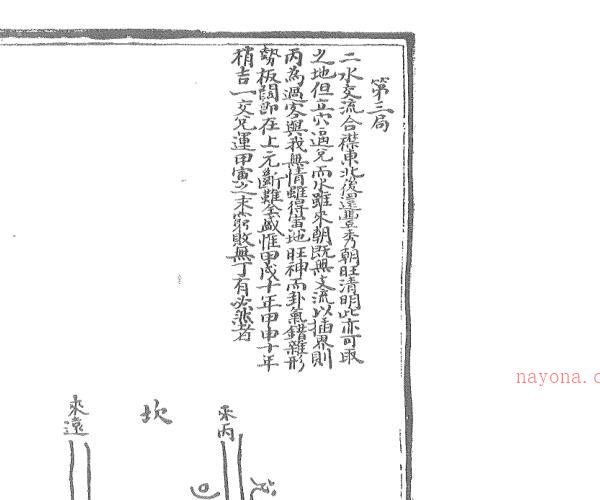 第三局
二水交流合襟東北後還豐秀朝旺清明此亦可取
之地但立穴逼兌而水雖來朝既無支流以插界則
丙為過客與我無情雖得寅地旺神而卦氣錯雜形
勢板闊即在上元斷難全盛惟甲戌十年甲申十年
稍吉一交兄運甲寅之末窮敗無丁有必然者
來丙
坎
來遠
nayona.c